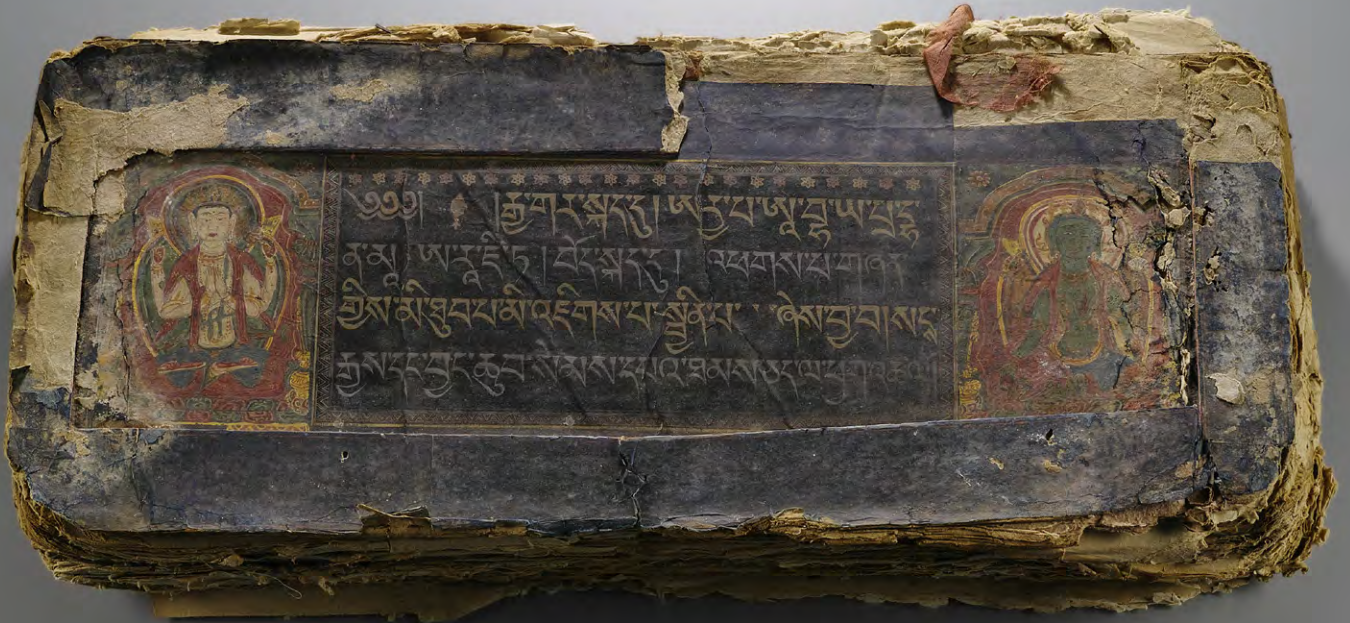 ༄༅༅། །རྒྱ་གར་སྐད་དུ། ཨ
ན་མ། །བོད་སྐད་དུ། འཕགས་པ་གཞན
གྱིས་མི་ཐུབ་པ་མི་འཇིགས་པ་སྦྱིན་པ་ ཞེས་བྱ་བ། སང
རྒྱས་དང་བྱང་ཆུབ་སེམས་དཔའ་ཐམས་ཅད་ལ་ཕྱག་འཚལ